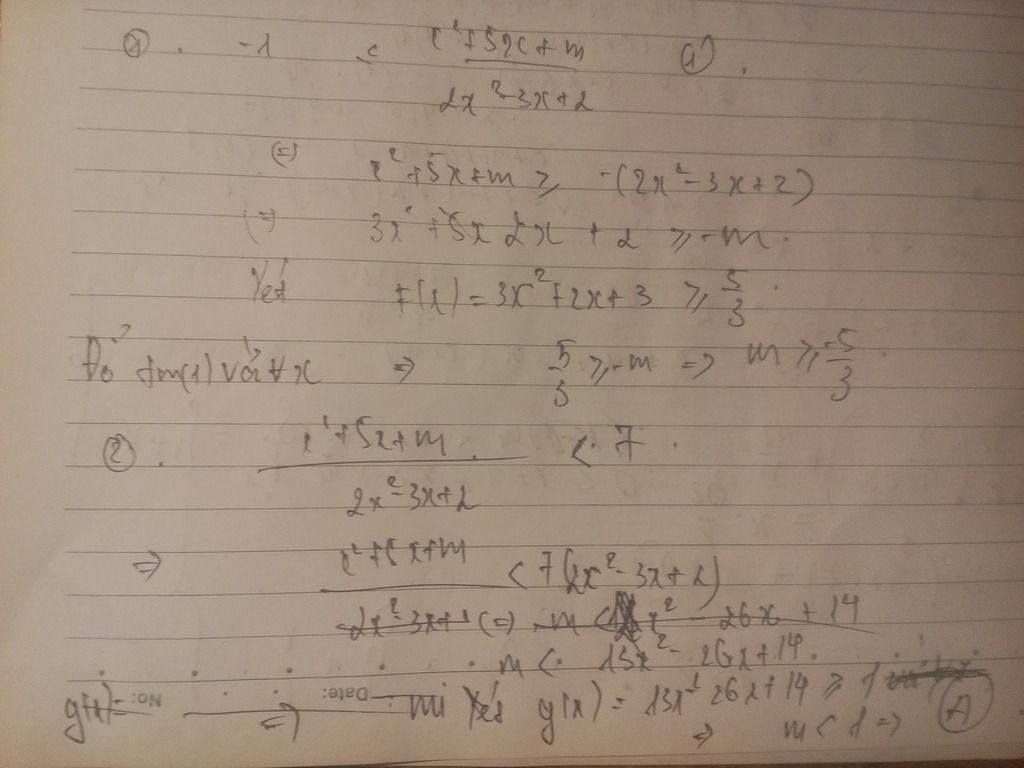 ① . -1 ≤ (x²+5x+m)/(2x²-3x+2) (1) .
(=) x²+5x+m ≥ -(2x²-3x+2)
(=) 3x²+5x 2x + 2 ≥ -m .
Xét f(x) = 3x²+2x+3 ≥ 5/3 .
Để tm(1) với ∀x => 5/3 ≥ -m => m ≥ -5/3 .
② . (x²+5x+m)/(2x²-3x+2) < 7 .
=> x²+5x+m < 7(2x²-3x+2)
2x²-3x+2 (=) m < x² - 26x + 14
m < 13x² - 26x + 14 .
g(x)= No: Date: => mà Xét g(x) = 13x² 26x + 14 ≥ 1
=> m < 1 => Ⓐ